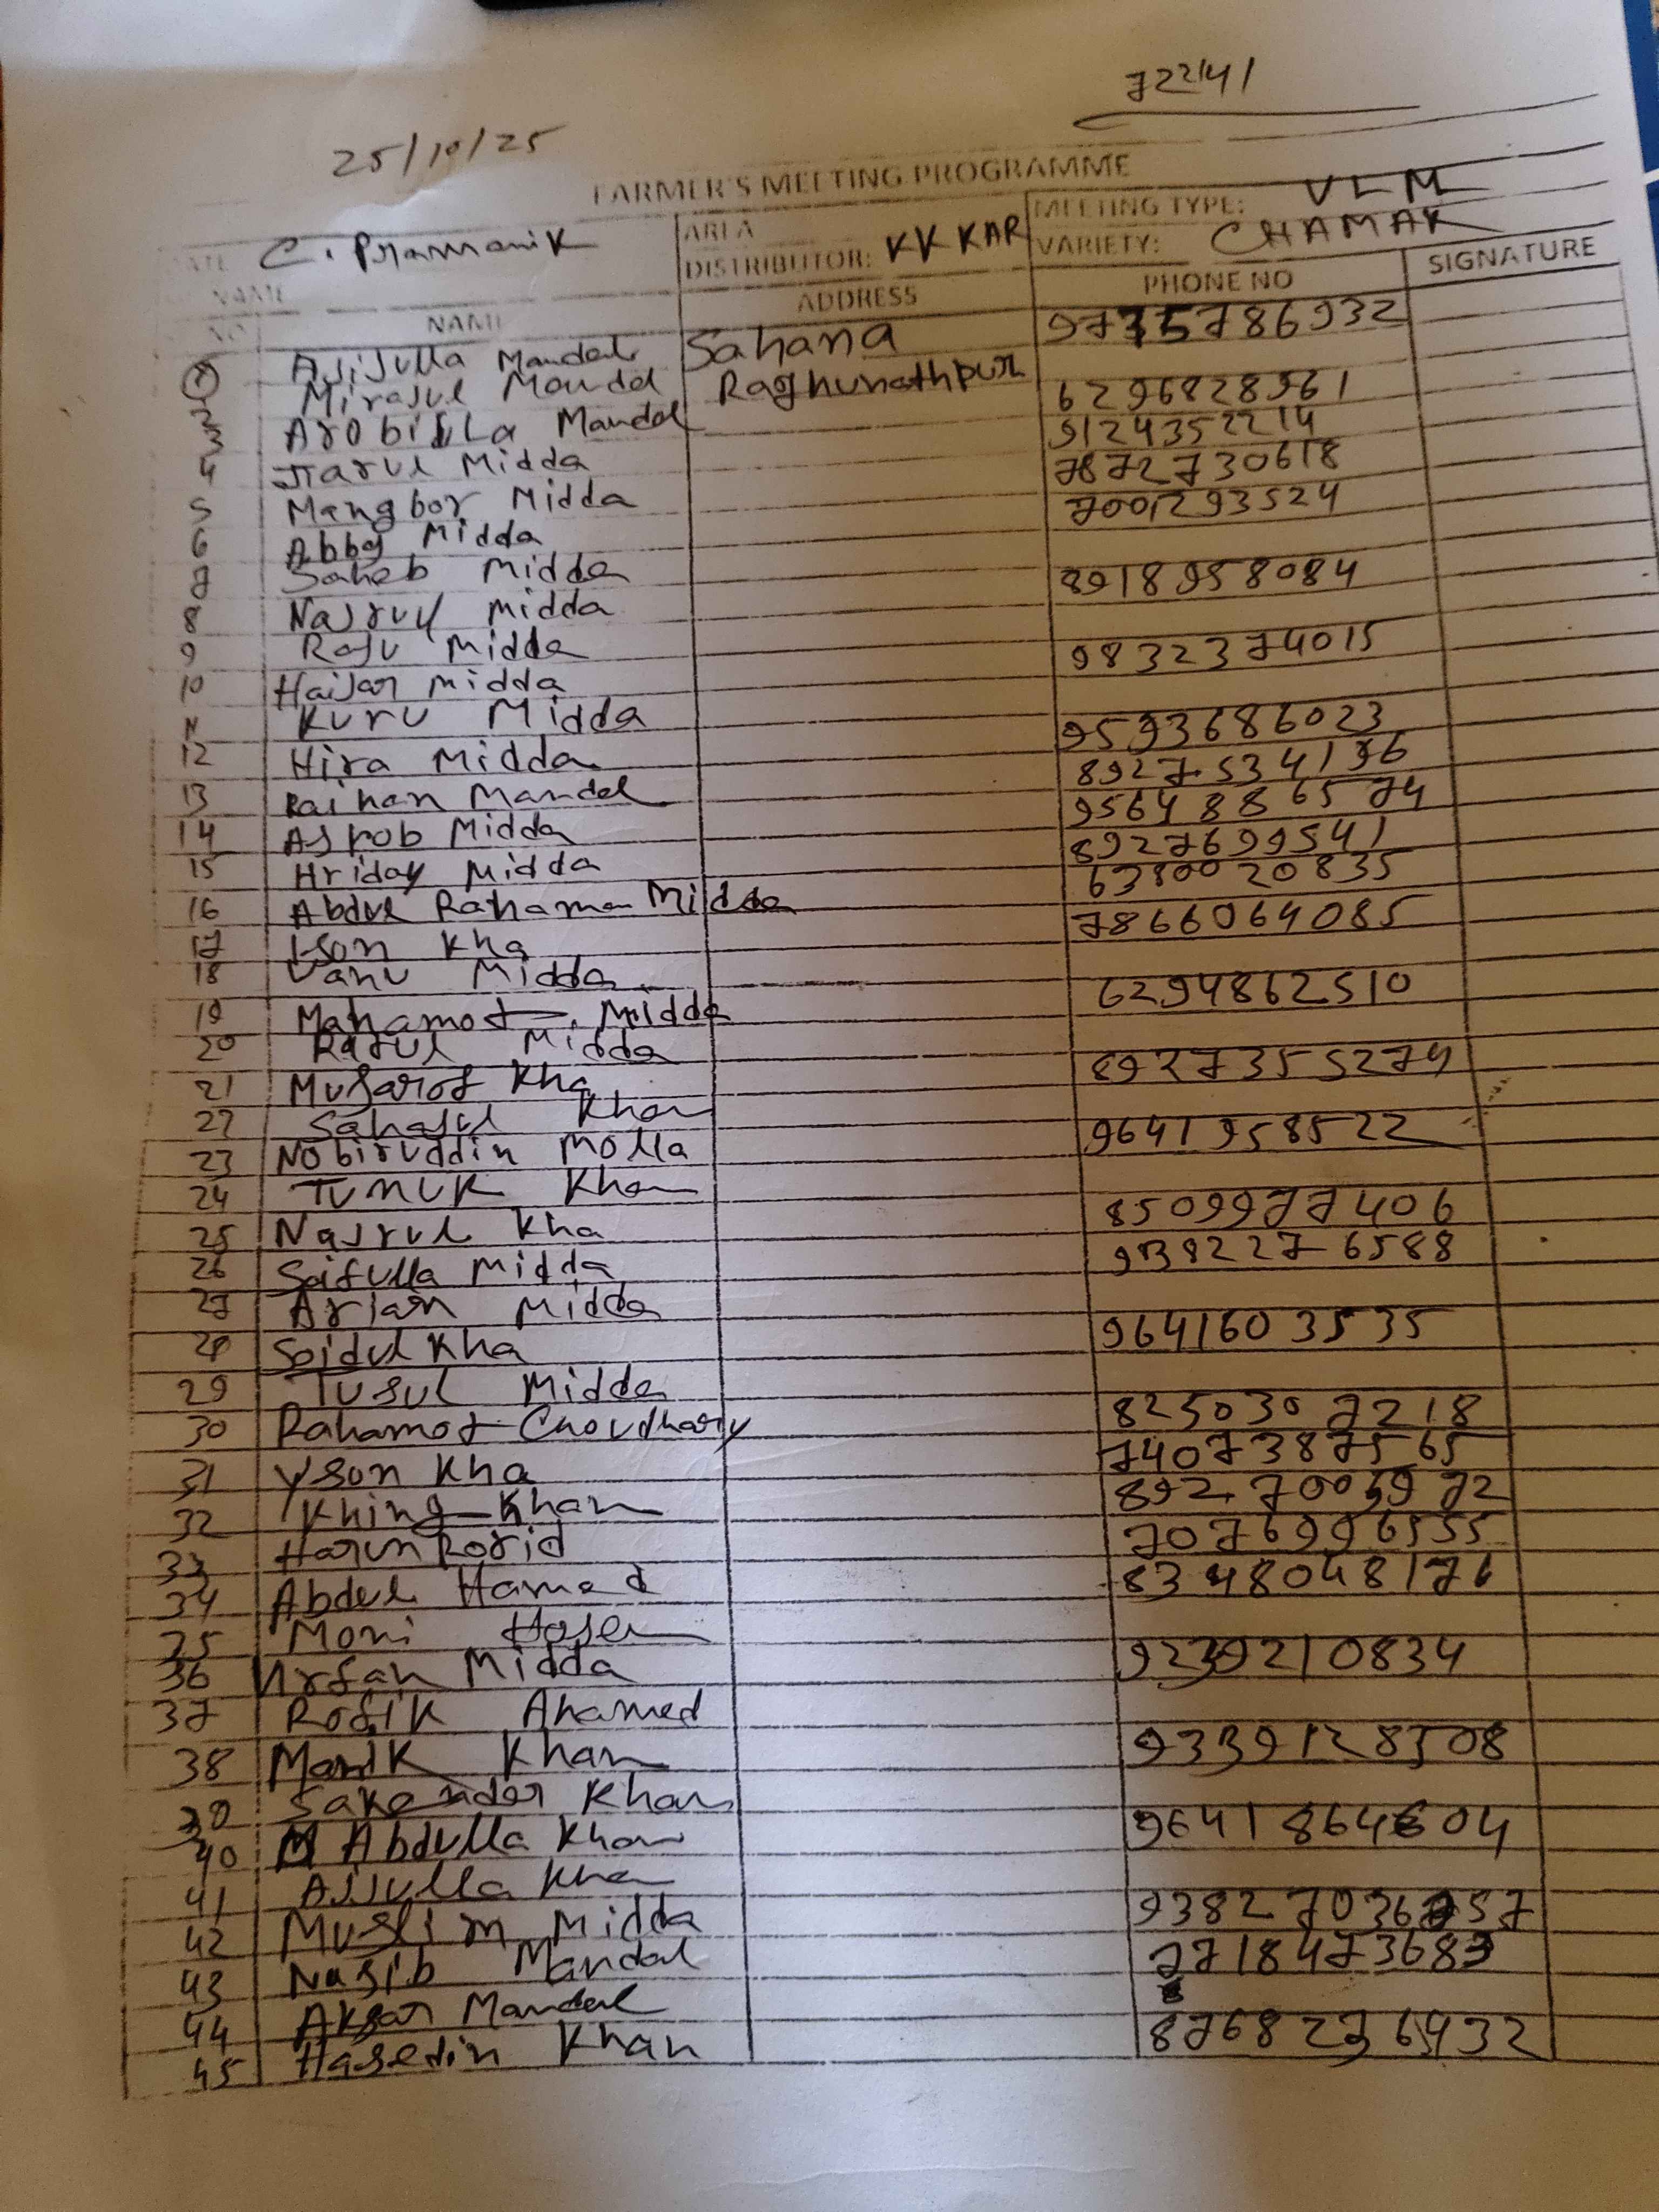 722141
25/10/25
FARMER'S MEETING PROGRAMME
C. Pramanik
AREA
DISTRIBUTOR: KK KAR
MEETING TYPE: VLM
VARIETY: CHAMAK
NAME
NO NAME ADDRESS PHONE NO SIGNATURE
1 Ajijulla Mandal Sahana 9735786932
2 Mirajul Mandal Raghunathpur 6296828961
3 Arobilla Mandal 9124352214
4 Jiarul Midda 7872730618
5 Mangbor Midda 7001293524
6 Abbas Midda
7 Saheb Midda 8918958084
8 Najrul Midda
9 Raju Midda 9832374015
10 Haijar Midda
11 Kuru Midda 9593686023
12 Hira Midda 8927534196
13 Raihan Mandal 9564886574
14 Asrob Midda 8927699541
15 Hriday Midda 6380020835
16 Abdul Rahaman Midda 7866064085
17 Ison Kha
18 Vanu Midda 6294862510
19 Mahamot Midda
20 Ratul Midda 8927355274
21 Musarof Kha
22 Sahajul Khan 9641958522
23 Nobiruddin Molla
24 Tumuk Khan 8509977406
25 Najrul Kha 9382276588
26 Saifulla Midda
27 Arian Midda 9641603535
28 Saidul Kha
29 Tusul Midda 8250307218
30 Rahamot Choudhary 7407387565
31 Yson Kha
32 Khing Khan 7076996555
33 Harun Rosid 8348048176
34 Abdul Hamed
35 Moni Hosen 9239210834
36 Urfan Midda
37 Rofik Ahamed 9339128508
38 Manik Khan
39 Sakender Khan 9641864604
40 Abdulla Khan
41 Ajijulla Kha
42 Muslim Midda
43 Nasib Mandal
44 Aksar Mandal 8768276932
45 Hasedin Khan